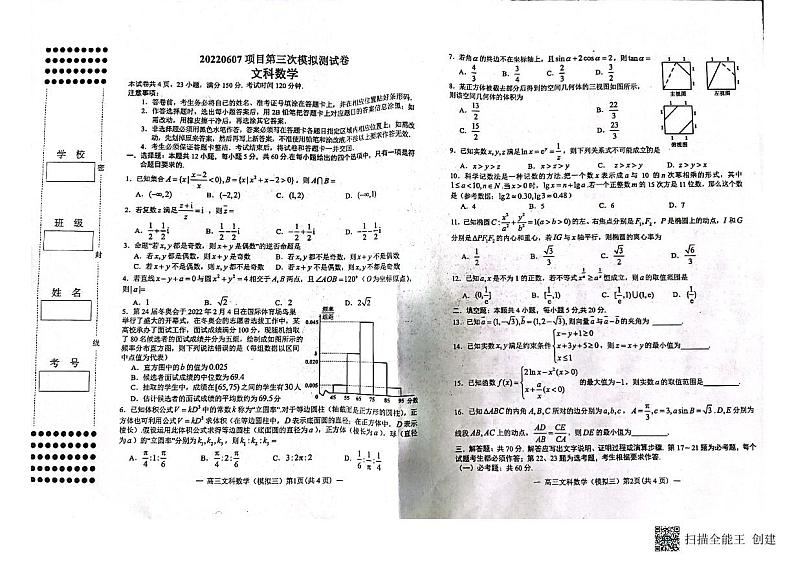 学 校
班 级
姓 名
考 号
密
封
线
20220607 项目第三次模拟测试卷
文科数学
本试卷共 4 页，23 小题，满分 150 分. 考试时间 120 分钟.
注意事项：
1. 答卷前，考生务必将自己的姓名、准考证号填涂在答题卡上，并在相应位置贴好条形码.
2. 作答选择题时，选出每小题答案后，用 2B 铅笔把答题卡上对应题目的答案信息涂黑；如
需改动，用橡皮擦干净后，再选涂其它答案.
3. 非选择题必须用黑色水笔作答，答案必须写在答题卡各题目指定区域内相应位置上；如需改
动，先划掉原来答案，然后再写上新答案，不准使用铅笔和涂改液.不按以上要求作答无效.
4. 考生必须保证答题卡整洁. 考试结束后，将试卷和答题卡一并交回.
一. 选择题：本题共 12 小题，每小题 5 分，共 60 分.在每小题给出的四个选项中，只有一项是符
合题目要求的.
1. 已知集合 A={x|(x−2)/x<0}, B={x|x²+x−2>0}，则 A∩B=
A. (−∞,2) B. (−2,2) C. (1,2) D. (−∞,1)
2. 若复数 z 满足 (z+i)/z=i ，则 z̄=
A. 1/2+1/2i B. 1/2−1/2i C. −1/2+1/2i D. −1/2−1/2i
3. 命题"若 x,y 都是奇数，则 x+y 是偶数"的逆否命题是
A. 若 x,y 都是偶数，则 x+y 是奇数 B. 若 x,y 都不是奇数，则 x+y 不是偶数
C. 若 x+y 不是偶数，则 x,y 都不是奇数 D. 若 x+y 不是偶数，则 x,y 不都是奇数
4. 若直线 x−y+a=0 与圆 x²+y²=4 相交于 A,B 两点，且∠AOB=120°（O 为坐标原点），
则 |a|=
A. 1 B. √2 C. 2 D. 2√2
5. 第 24 届冬奥会于 2022 年 2 月 4 日在国家体育场鸟巢
举行了盛大的开幕式，在冬奥会的志愿者选拔工作中，某
高校承办了面试工作，面试成绩满分 100 分，现随机抽取
了 80 名候选者的面试成绩并分为五组，绘制成如图所示的
频率分布直方图，则下列说法错误的是（每组数据以区间
中点值为代表）
A. 直方图中的 b 的值为 0.025
B. 候选者面试成绩的中位数约为 69.4
C. 抽取的学生中，成绩在[65,75)之间的学生有 30 人
D. 估计候选者的面试成绩的平均数约为 69.5 分
频率
组距
0.045
0.020
0.005
45 55 65 75 85 95 分数
6. 已知体积公式 V=kD³ 中的常数 k 称为"立圆率".对于等边圆柱（轴截面是正方形的圆柱），正
方体也可利用公式 V=kD³ 求体积（在等边圆柱中，D 表示底面圆的直径；在正方体中，D 表示
棱长）.假设运用此体积公式求得等边圆柱（底面圆的直径为 a），正方体（棱长为 a），球（直径
为 a）的"立圆率"分别为 k₁,k₂,k₃，则 k₁:k₂:k₃=
A. π/4:1:π/6 B. π/4:2:π/6 C. 3:2π:2 D. π/6:1:π/4
－ 高三文科数学（模拟三）第1页(共 4 页) －
7. 若角 α 的终边不在坐标轴上，且 sin α+2cos α=2，则 tan α=
A. 4/3 B. 3/4 C. 2/3 D. 3/2
8. 某正方体被截去部分后得到的空间几何体的三视图如图所示，
则该空间几何体的体积为
A. 13/2 B. 22/3
C. 15/2 D. 23/3
主视图
左视图
俯视图
9. 已知实数 x,y,z 满足 ln x=eʸ=1/z，则下列关系式不可能成立的是
A. x>y>z B. x>z>y C. z>x>y D. z>y>x
10. 科学记数法是一种记数的方法.把一个数 x 表示成 a 与 10 的 n 次幂相乘的形式，其中
1≤a<10,n∈N.当 x>0 时，lg x=n+lg a.若一个正整数 m 的 15 次方是 11 位数，那么这个数
是（参考数据：lg2≈0.30,lg3≈0.48）
A. 4 B. 5 C. 6 D. 7
11. 已知椭圆 C: x²/a²+y²/b²=1(a>b>0)的左、右焦点分别是 F₁,F₂，P 是椭圆上的动点，I 和 G
分别是△PF₁F₂的内心和重心，若 IG 与 x 轴平行，则椭圆的离心率为
A. 1/2 B. √3/3 C. √3/2 D. √6/3
二. 填空题：本题共 4 小题，每小题 5 分,共 20 分.
13. 已知 a=(1,−√3),b=(1,2−√3),则向量 a 与 b 的夹角为
14. 已知实数 x,y 满足约束条件 { x−y+1≥0 x+3y+5≥0 x≤1 ，则 z=x+y 的最小值为
15. 已知函数 f(x)={ 2ln x−x²(x>0) x+a/x(x<0) 的最大值为−1，则实数 a 的取值范围是
16. 已知△ABC 的内角 A,B,C 所对的边分别为 a,b,c，A=π/3,c=3,asinB=√3.D,E 分别为
线段 AB,AC 上的动点，AD/AB=CE/CA，则 DE 的最小值为
三. 解答题：共 70 分. 解答应写出文字说明、证明过程或演算步骤. 第 17～21 题为必考题，每个
试题考生都必须作答；第 22、23 题为选考题，考生根据要求作答.
（一）必考题：共 60 分.
－ 高三文科数学（模拟三）第2页(共 4 页) －
扫描全能王 创建